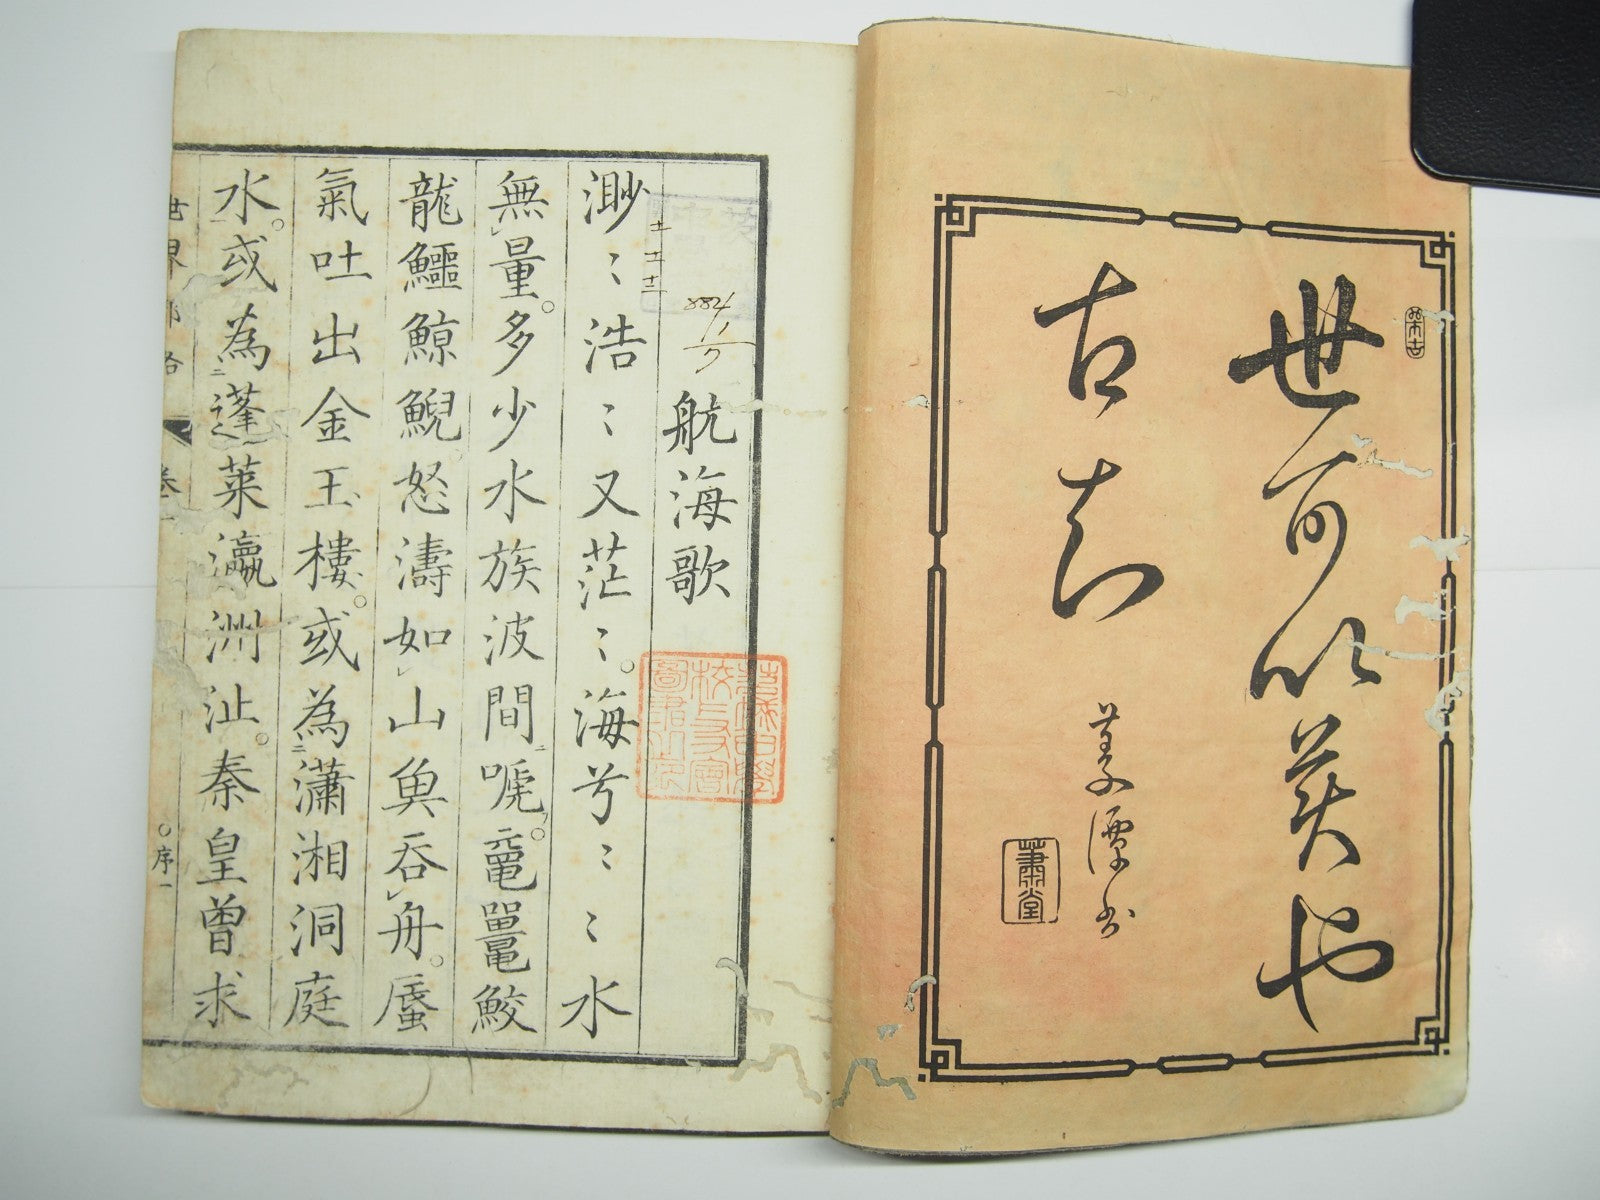 世可以美也
古知
航海歌
渺〻浩〻又茫〻。海兮〻〻水
無量。多少水族波間唬。黿鼉鮫
龍鱷鯨鯢。怒濤如山魚呑舟。蜃
氣吐出金玉樓。或為瀟湘洞庭
水。或為蓬萊瀛洲沚。秦皇曾求
世界都路 卷一 〇序一